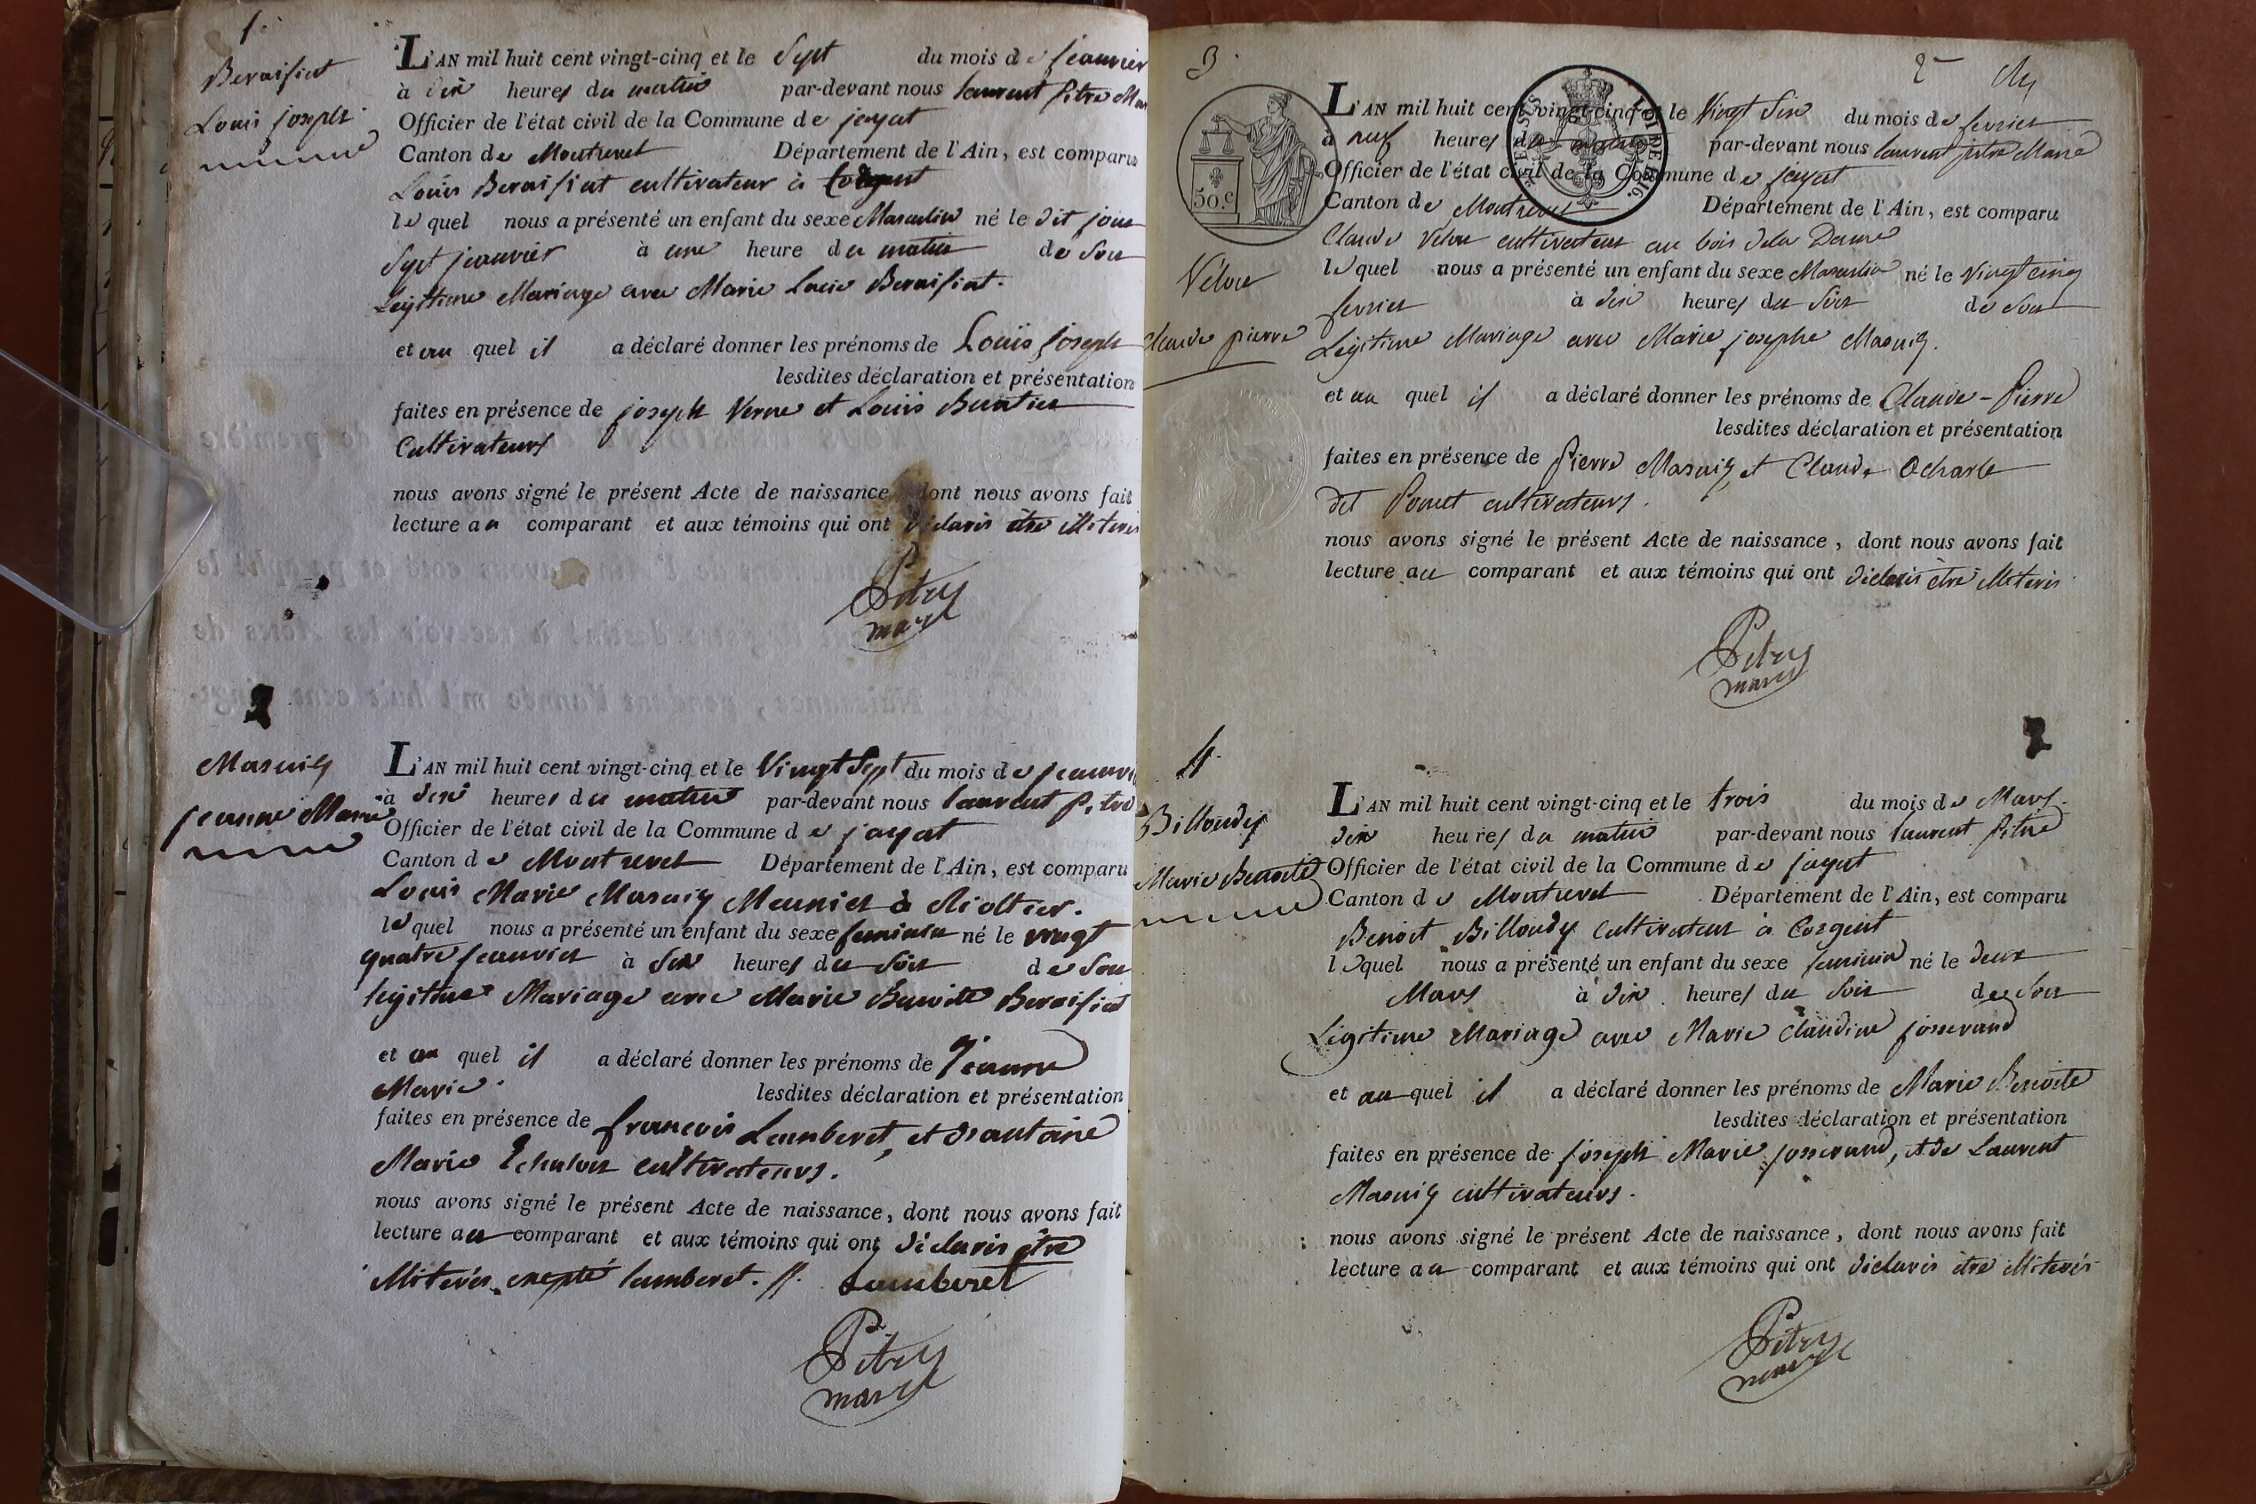 1.
Beraisiat
Louis joseph
L'AN mil huit cent vingt-cinq et le Sept du mois de jeanvier
à dix heures du matin par-devant nous laurent Pitre
Officier de l'état civil de la Commune de jayat
Canton de Montrevel Département de l'Ain, est comparu
Louis Beraisiat cultivateur à
lequel nous a présenté un enfant du sexe Masculin né le dit jour
Sept jeanvier à une heure du matin de Son
Legitime Mariage avec Marie Beraisiat.
et au quel il a déclaré donner les prénoms de Louis joseph
lesdites déclaration et présentation
faites en présence de joseph Verne et Louis
Cultivateurs
nous avons signé le présent Acte de naissance, dont nous avons fait
lecture au comparant et aux témoins qui ont déclarés être illiterés
Pitre
2
Masuiy
jeanne Marie
L'AN mil huit cent vingt-cinq et le Vingt Sept du mois de jeanvier
à dix heures du matin par-devant nous laurent Pitre
Officier de l'état civil de la Commune de jayat
Canton de Montrevel Département de l'Ain, est comparu
Louis Marie Masuiy Meunier à
lequel nous a présenté un enfant du sexe feminin né le vingt
quatre jeanvier à dix heures du soir de Son
legitime Mariage avec Marie Benoite Beraisiat
et au quel il a déclaré donner les prénoms de jeanne
Marie. lesdites déclaration et présentation
faites en présence de francois Lamberet, et d'antoine
Marie cultivateurs.
nous avons signé le présent Acte de naissance, dont nous avons fait
lecture au comparant et aux témoins qui ont déclarés être
illiterés, excepté lamberet. Lamberet
Pitre
3.
2
50.c
Vélon
Claude pierre
L'AN mil huit cent vingt-cinq et le Vingt Six du mois de fevrier
à neuf heures du matin par-devant nous laurent pitre Maire
Officier de l'état civil de la Commune de jayat
Canton de Montrevel Département de l'Ain, est comparu
Claude Velon cultivateur au bois de la Dame
lequel nous a présenté un enfant du sexe Masculin né le Vingt cinq
fevrier à dix heures du soir de Son
Legitime Mariage avec Marie josephe Masuiy.
et au quel il a déclaré donner les prénoms de Claude-Pierre
lesdites déclaration et présentation
faites en présence de Pierre Masuiy et Claude
dit cultivateurs.
nous avons signé le présent Acte de naissance, dont nous avons fait
lecture au comparant et aux témoins qui ont déclarés être illiterés
Pitre
2
4.
Billoudy
Marie Benoite
L'AN mil huit cent vingt-cinq et le trois du mois de Mars
dix heures du matin par-devant nous laurent Pitre
Officier de l'état civil de la Commune de jayat
Canton de Montrevel Département de l'Ain, est comparu
Benoit Billoudy cultivateur à Corgent
lequel nous a présenté un enfant du sexe feminin né le deux
Mars à dix heures du Soir de Son
Legitime Mariage avec Marie Claudine josserand
et au quel il a déclaré donner les prénoms de Marie Benoite
lesdites déclaration et présentation
faites en présence de joseph Marie josserand, et de Laurent
Masuiy cultivateurs.
nous avons signé le présent Acte de naissance, dont nous avons fait
lecture au comparant et aux témoins qui ont déclarés être illiterés
Pitre